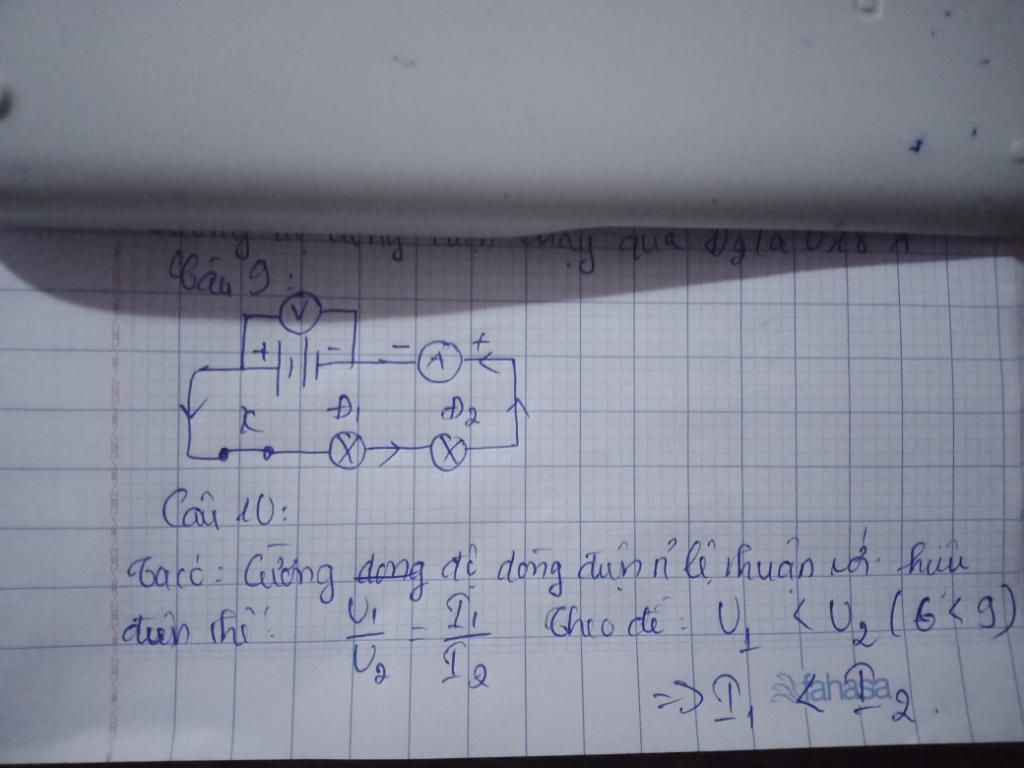 qua Đ2 là 0,18 A
Câu 9:
V
+ - - A +
K Đ1 Đ2
X X
Câu 10:
Ta có: Cường dong độ dòng điện tỉ lệ thuận với hiệu
điện thế: U1/U2 = I1/I2 Theo đề: U1 < U2 (6 < 9)
=> I1 < I2.
fahasa